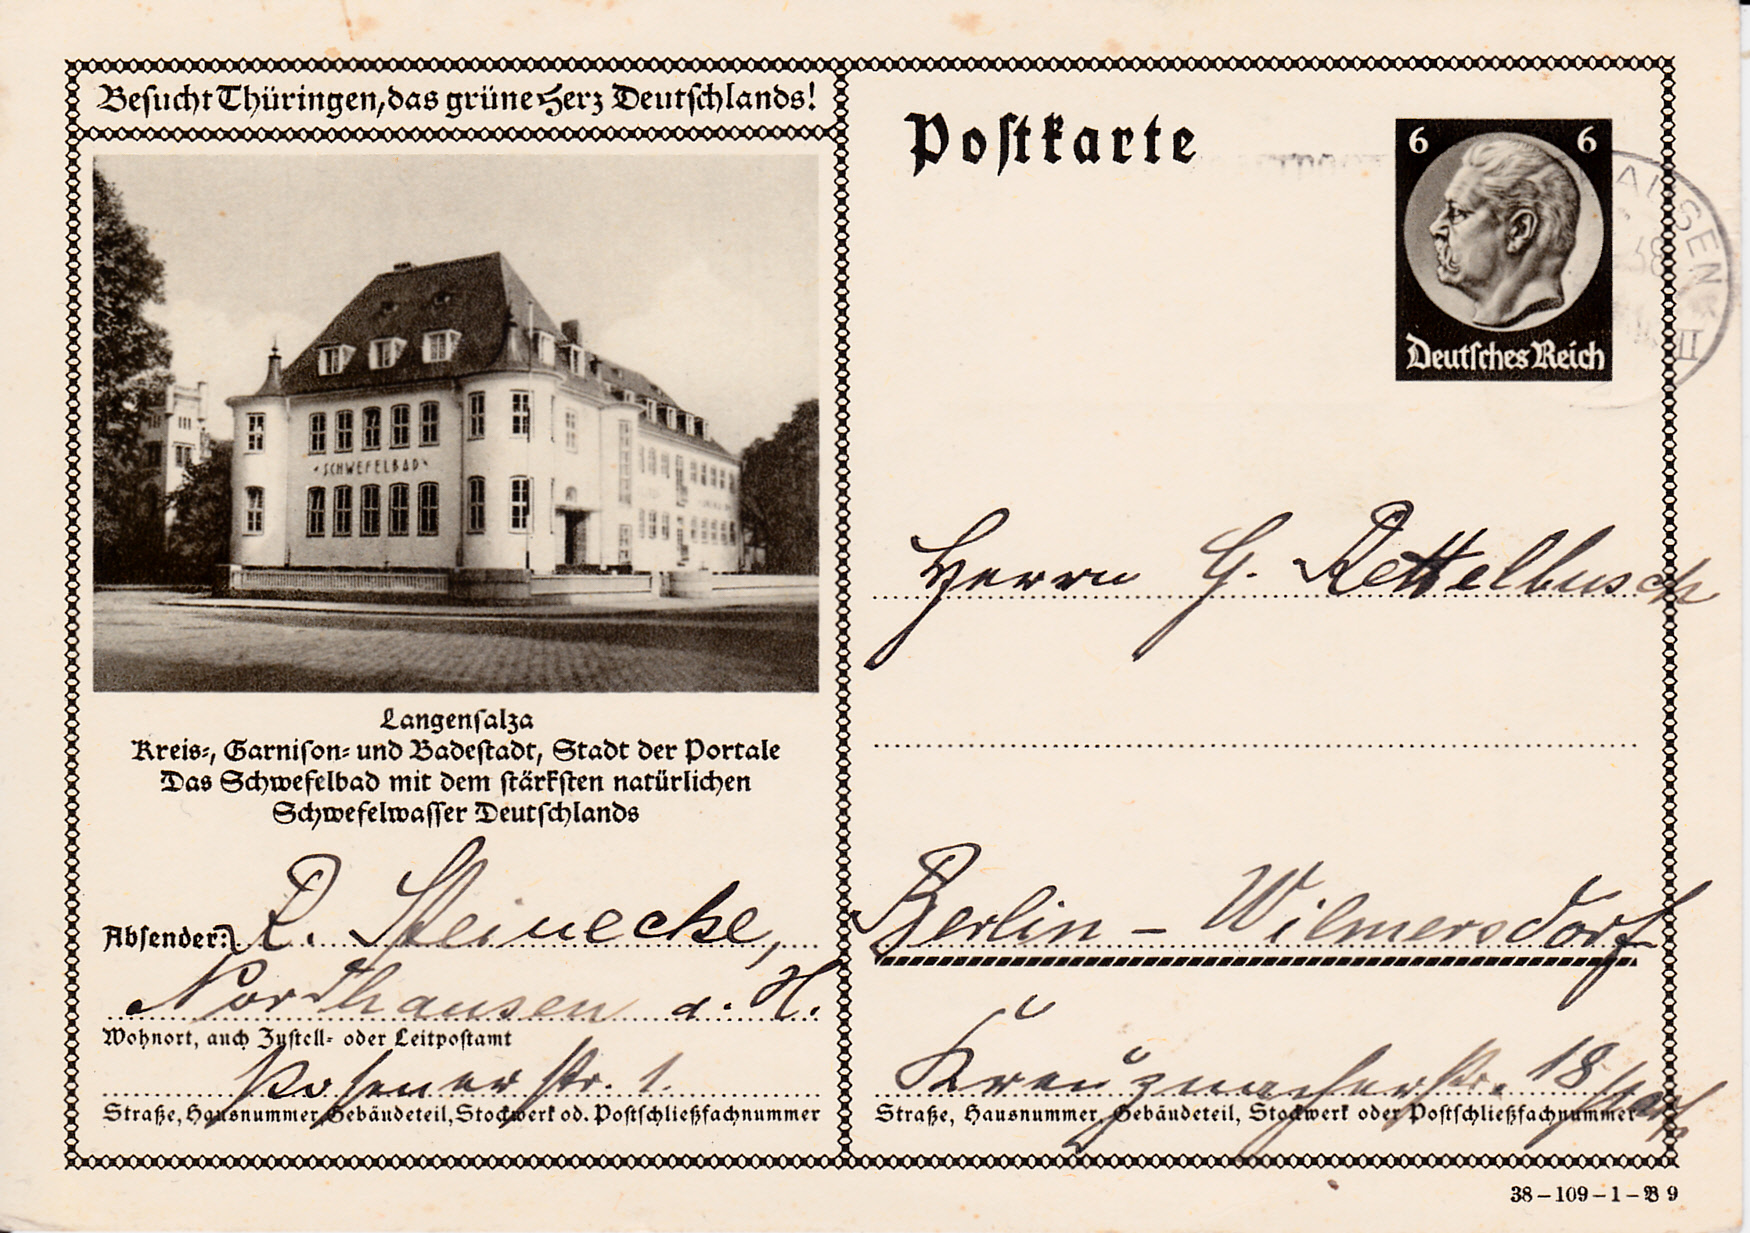 Besucht Thüringen, das grüne Herz Deutschlands!
SCHWEFELBAD
Langensalza
Kreis-, Garnison- und Badestadt, Stadt der Portale
Das Schwefelbad mit dem stärksten natürlichen
Schwefelwasser Deutschlands
Absender: R. Steinecke,
Nordhausen a. H.
Wohnort, auch Zustell- oder Leitpostamt
Posener Str. 1.
Straße, Hausnummer, Gebäudeteil, Stockwerk od. Postschließfachnummer
Postkarte
6 6
Deutsches Reich
AUSEN
38
II
Herrn G. Rettelbusch
Berlin - Wilmersdorf
Kreuznacherstr. 18
Straße, Hausnummer, Gebäudeteil, Stockwerk oder Postschließfachnummer
38 - 109 - 1 - B 9